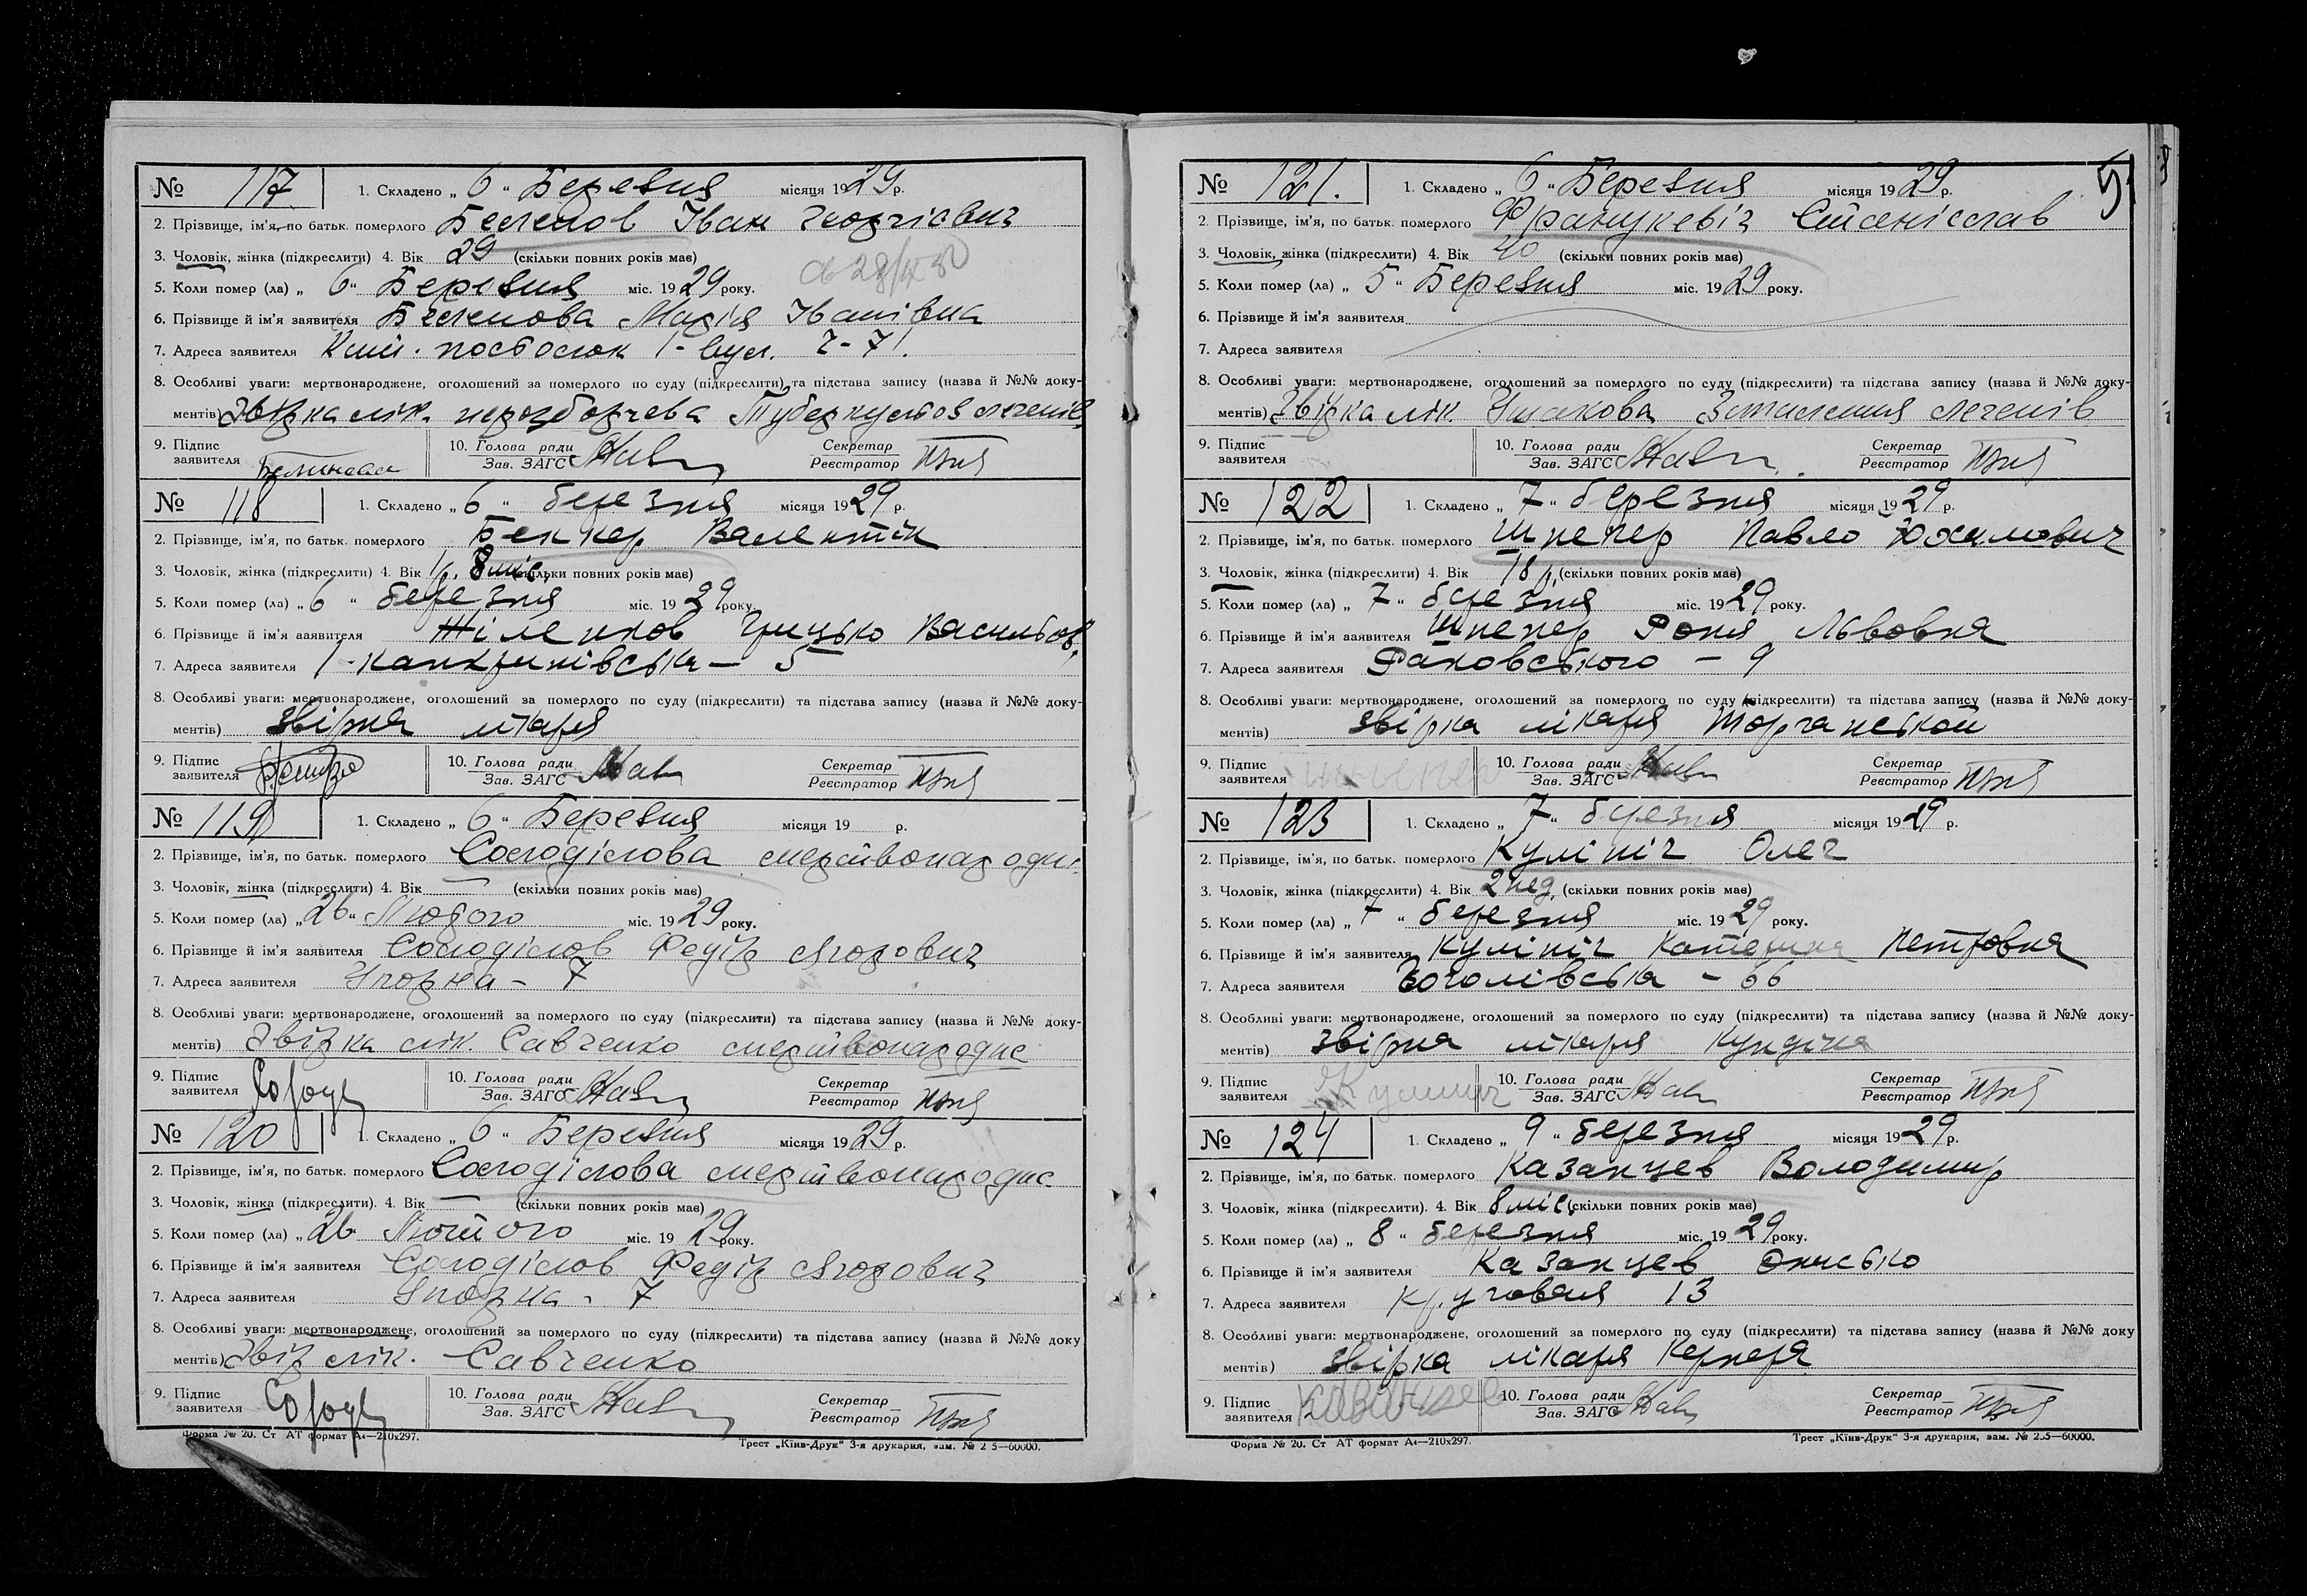 № 117 1. Складено „ 6 “ Березня місяця 1929 р.
2. Прізвище, ім'я, по батьк. померлого Іван Георгієвич
3. Чоловік, жінка (підкреслити) 4. Вік 29 (скільки повних років має)
5. Коли помер (ла) „ 6 “ Березня міс. 1929 року.
6. Прізвище й ім'я заявителя Марія Іванівна
7. Адреса заявителя 1- вул. ч- 71.
8. Особливі уваги: мертвонароджене, оголошений за померлого по суду (підкреслити) та підстава запису (назва й №№ доку-
ментів) Звірка лік. Туберкульоз легенів
9. Підпис заявителя 10. Голова ради Зав. ЗАГС Секретар Реєстратор
№ 118 1. Складено „ 6 “ березня місяця 1929 р.
2. Прізвище, ім'я, по батьк. померлого Беккер Валентін
3. Чоловік, жінка (підкреслити) 4. Вік 1 р. 8 міс. (скільки повних років має)
5. Коли помер (ла) „ 6 “ березня міс. 1929 року.
6. Прізвище й ім'я заявителя Жіленков Грицько Васильов.
7. Адреса заявителя 1-Канкринівська – 5
8. Особливі уваги: мертвонароджене, оголошений за померлого по суду (підкреслити) та підстава запису (назва й №№ доку-
ментів) звірка лікаря
9. Підпис заявителя 10. Голова ради Зав. ЗАГС Секретар Реєстратор
№ 119 1. Складено „ 6 “ Березня місяця 19 р.
2. Прізвище, ім'я, по батьк. померлого Солоділова мертвонародне
3. Чоловік, жінка (підкреслити) 4. Вік — (скільки повних років має)
5. Коли помер (ла) „ 26 “ Лютого міс. 1929 року.
6. Прізвище й ім'я заявителя Солоділов Федір Ягорович
7. Адреса заявителя Упорна - 7
8. Особливі уваги: мертвонароджене, оголошений за померлого по суду (підкреслити) та підстава запису (назва й №№ доку-
ментів) Звірка лік. Савченко мертвонародне
9. Підпис заявителя Солод 10. Голова ради Зав. ЗАГС Секретар Реєстратор
№ 120 1. Складено „ 6 “ Березня місяця 1929 р.
2. Прізвище, ім'я, по батьк. померлого Солоділова мертвонародне
3. Чоловік, жінка (підкреслити). 4. Вік — (скільки повних років має)
5. Коли помер (ла) „ 26 Лютого міс. 1929 року.
6. Прізвище й ім'я заявителя Солоділов Федір Ягорович
7. Адреса заявителя Упорна - 7
8. Особливі уваги: мертвонароджене, оголошений за померлого по суду (підкреслити) та підстава запису (назва й №№ доку
ментів) Звір лік. Савченко
9. Підпис заявителя Солод 10. Голова ради Зав. ЗАГС Секретар Реєстратор
Форма № 20. Ст АТ формат А4—210x297. Трест „Київ-Друк“ 3-я друкарня, зам. № 2 5—60000.
№ 121. 1. Складено „ 6 “ Березня місяця 1929 р. 5
2. Прізвище, ім'я, по батьк. померлого Францкевіч Станіслав
3. Чоловік, жінка (підкреслити) 4. Вік 40 (скільки повних років має)
5. Коли помер (ла) „ 5 “ Березня міс. 1929 року.
6. Прізвище й ім'я заявителя
7. Адреса заявителя
8. Особливі уваги: мертвонароджене, оголошений за померлого по суду (підкреслити) та підстава запису (назва й №№ доку-
ментів) Звірка лік. Ушакова Запалення легенів
9. Підпис заявителя 10. Голова ради Зав. ЗАГС Секретар Реєстратор
№ 122 1. Складено „ 7 “ березня місяця 1929 р.
2. Прізвище, ім'я, по батьк. померлого Шпекер Павло Юхимович
3. Чоловік, жінка (підкреслити) 4. Вік 18 р. (скільки повних років має)
5. Коли помер (ла) „ 7 “ березня міс. 1929 року.
6. Прізвище й ім'я заявителя Шпекер Роня Львовна
7. Адреса заявителя Раковського – 9
8. Особливі уваги: мертвонароджене, оголошений за померлого по суду (підкреслити) та підстава запису (назва й №№ доку-
ментів) звірка лікаря
9. Підпис заявителя 10. Голова ради Зав. ЗАГС Секретар Реєстратор
№ 123 1. Складено „ 7 “ березня місяця 1929 р.
2. Прізвище, ім'я, по батьк. померлого Кулініч Олег
3. Чоловік, жінка (підкреслити) 4. Вік 2 нед. (скільки повних років має)
5. Коли помер (ла) „ 7 “ березня міс. 1929 року.
6. Прізвище й ім'я заявителя Кулініч Катерина Петровна
7. Адреса заявителя Гоголівська – 66
8. Особливі уваги: мертвонароджене, оголошений за померлого по суду (підкреслити) та підстава запису (назва й №№ доку-
ментів) звірка лікаря
9. Підпис заявителя Кулинич 10. Голова ради Зав. ЗАГС Секретар Реєстратор
№ 124 1. Складено „ 9 “ березня місяця 1929 р.
2. Прізвище, ім'я, по батьк. померлого Казанцев Володимир
3. Чоловік, жінка (підкреслити). 4. Вік 8 міс. (скільки повних років має)
5. Коли помер (ла) „ 8 “ березня міс. 1929 року.
6. Прізвище й ім'я заявителя Казанцев Онисько
7. Адреса заявителя 13
8. Особливі уваги: мертвонароджене, оголошений за померлого по суду (підкреслити) та підстава запису (назва й №№ доку
ментів) звірка лікаря Кернера
9. Підпис заявителя 10. Голова ради Зав. ЗАГС Секретар Реєстратор
Форма № 20. Ст АТ формат А4—210x297. Трест „Київ-Друк“ 3-я друкарня, зам. № 235—60000.